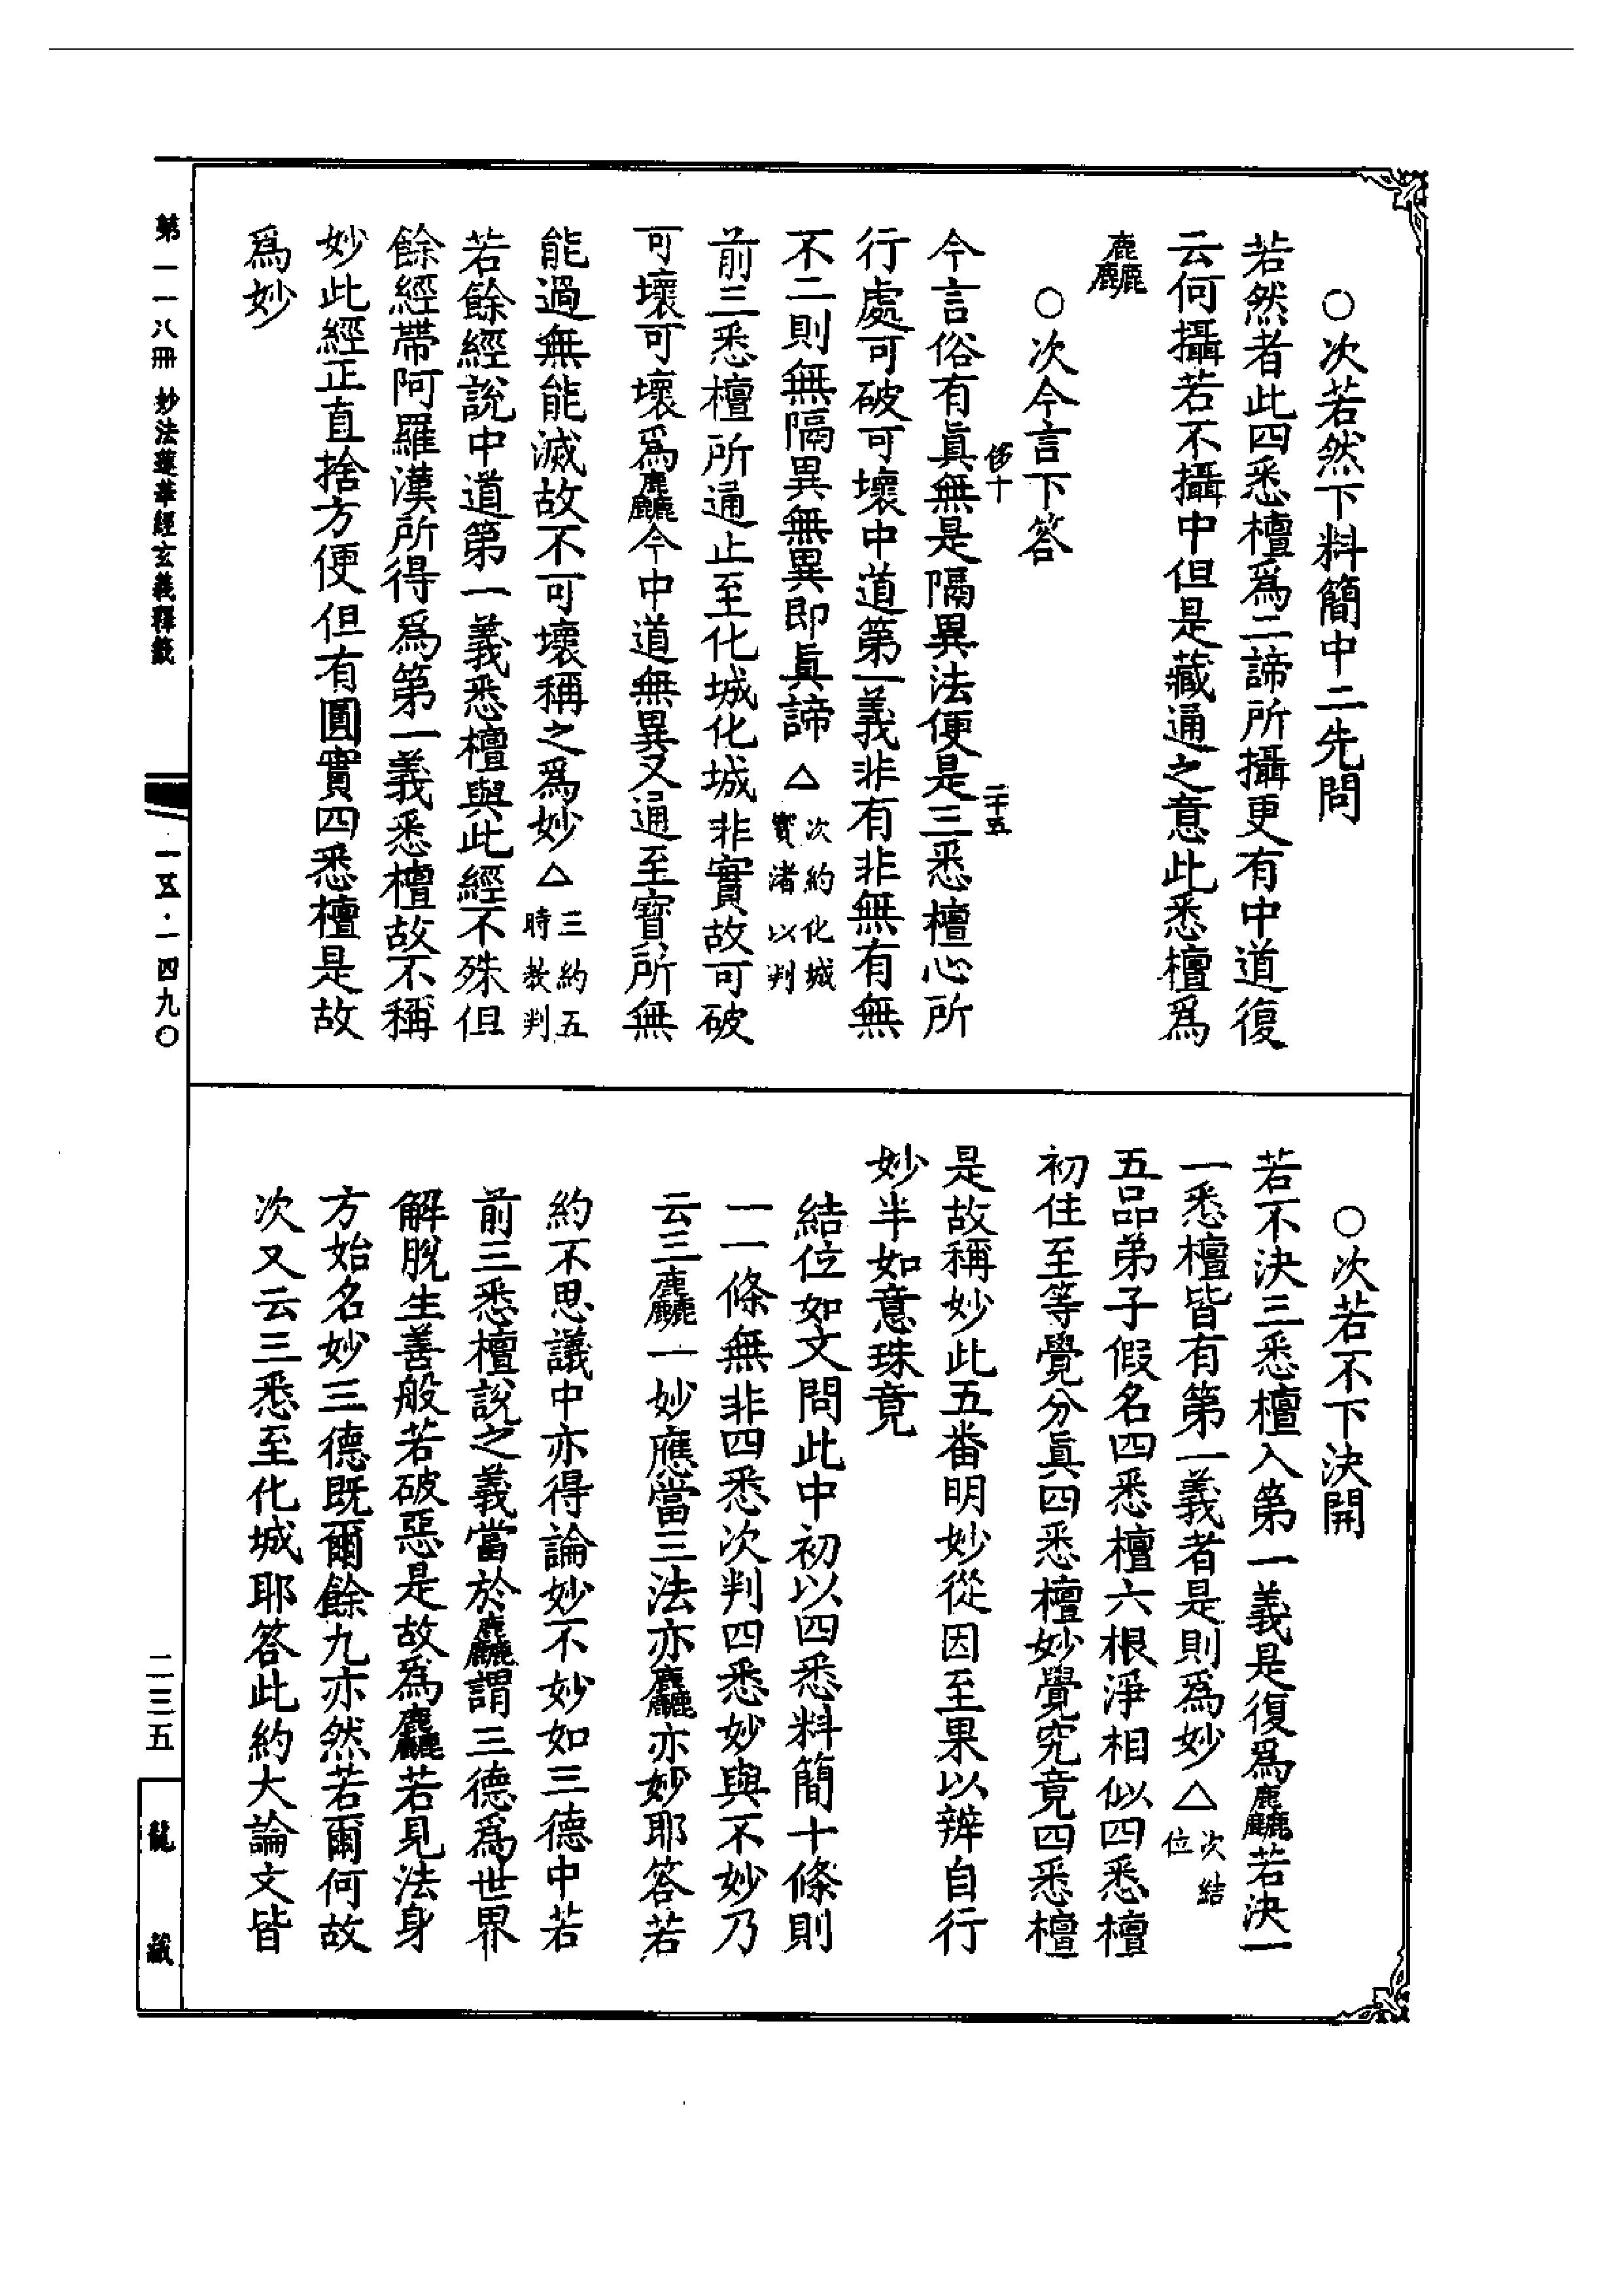 ○次若然下料簡中二先問
若然者此四悉檀爲二諦所攝更有中道復
云何攝若不攝中但是藏通之意此悉檀爲
麤
○次今言下答
今言俗有眞無是隔異法便是三悉檀心所
行處可破可壞中道第一義非有非無有無
不二則無隔異無異即眞諦△次約化城
寶渚以判
前三悉檀所通止至化城化城非實故可破
可壞可壞爲麤今中道無異又通至寶所無
能過無能滅故不可壞稱之爲妙△三約五
時教判
若餘經說中道第一義悉檀與此經不殊但
餘經帶阿羅漢所得爲第一義悉檀故不稱
妙此經正直捨方便但有圓實四悉檀是故
爲妙
十
二十五
○次若不下決開
若不決三悉檀入第一義是復爲麤若決一
一悉檀皆有第一義者是則爲妙△次結
位
五品弟子假名四悉檀六根淨相似四悉檀
初住至等覺分眞四悉檀妙覺究竟四悉檀
是故稱妙此五番明妙從因至果以辨自行
妙半如意珠竟
結位如文問此中初以四悉料簡十條則
一一條無非四悉次判四悉妙與不妙乃
云三麤一妙應當三法亦麤亦妙耶答若
約不思議中亦得論妙不妙如三德中若
前三悉檀說之義當於麤謂三德爲世界
解脫生善般若破惡是故爲麤若見法身
方始名妙三德既爾餘九亦然若爾何故
次又云三悉至化城耶答此約大論文皆
第一一八冊 妙法蓮華經玄義釋籤
一五·一四九〇
二三五
龍藏